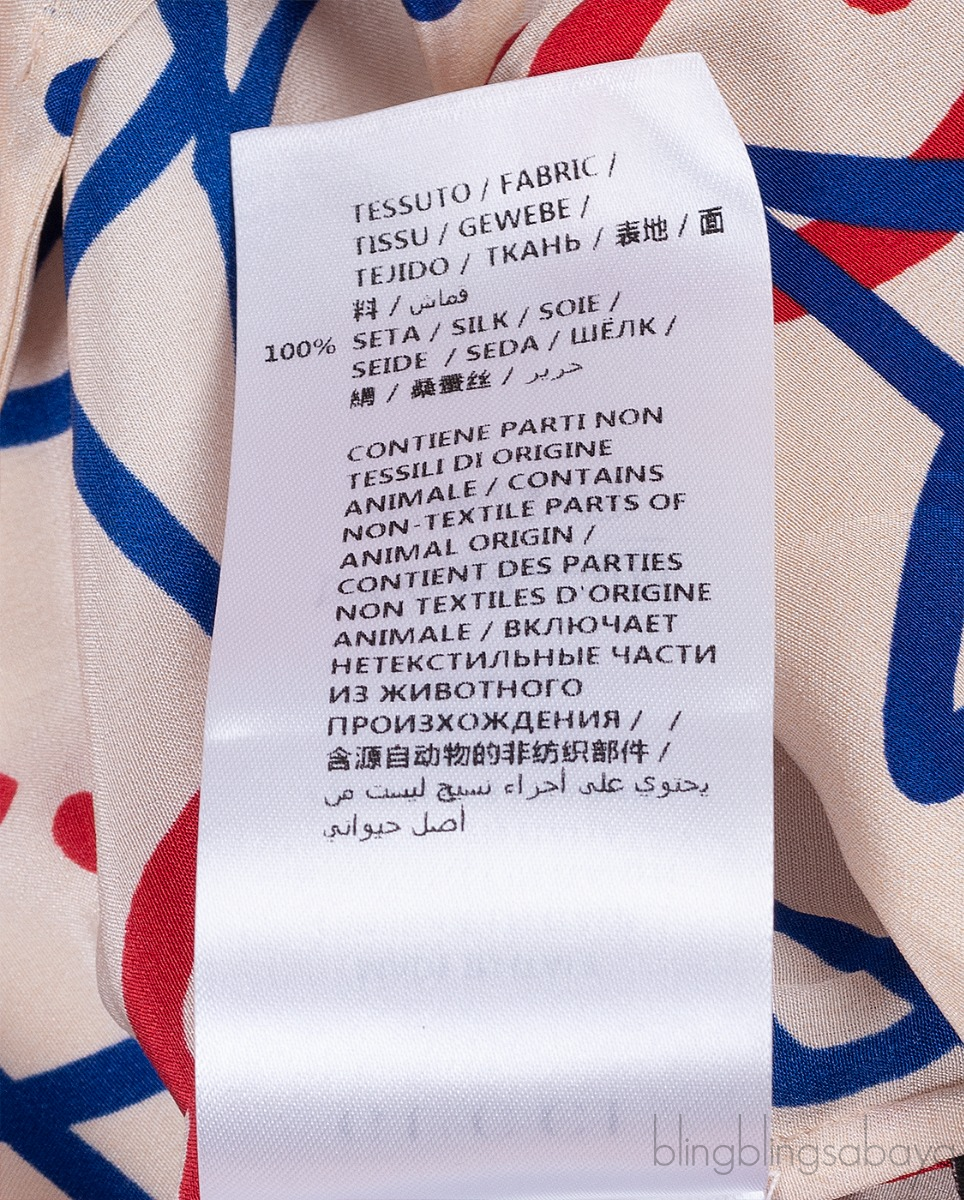 TESSUTO / FABRIC /
TISSU / GEWEBE /
TEJIDO / ТКАНЬ / 表地 / 面
料 / قماش
100% SETA / SILK / SOIE /
SEIDE / SEDA / ШЁЛК /
絹 / 桑蚕丝 / حرير
CONTIENE PARTI NON
TESSILI DI ORIGINE
ANIMALE / CONTAINS
NON-TEXTILE PARTS OF
ANIMAL ORIGIN /
CONTIENT DES PARTIES
NON TEXTILES D'ORIGINE
ANIMALE / ВКЛЮЧАЕТ
НЕТЕКСТИЛЬНЫЕ ЧАСТИ
ИЗ ЖИВОТНОГО
ПРОИЗХОЖДЕНИЯ / /
含源自动物的非纺织部件 /
يحتوي على أجزاء نسيج ليست من
أصل حيواني
blingblingsabaya